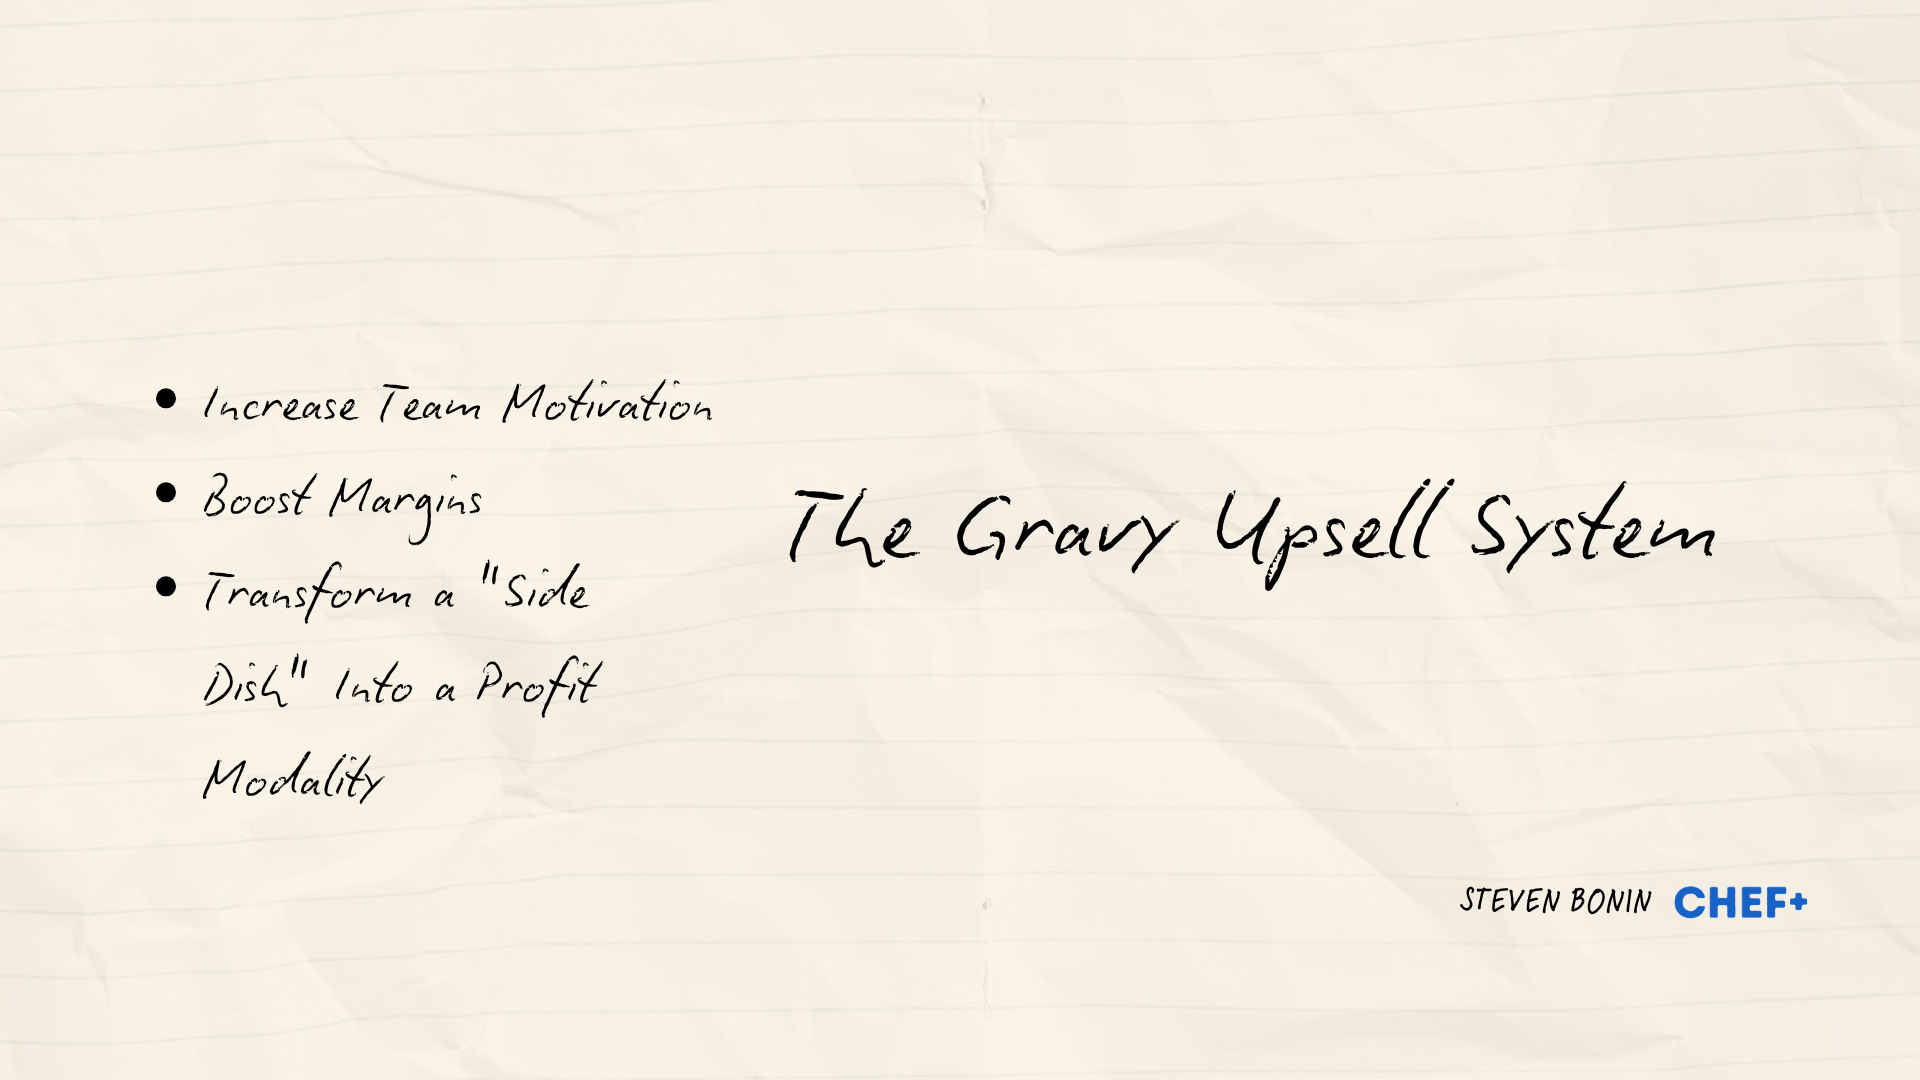 • Increase Team Motivation
• Boost Margins
• Transform a "Side
Dish" Into a Profit
Modality
The Gravy Upsell System
STEVEN BONIN CHEF+